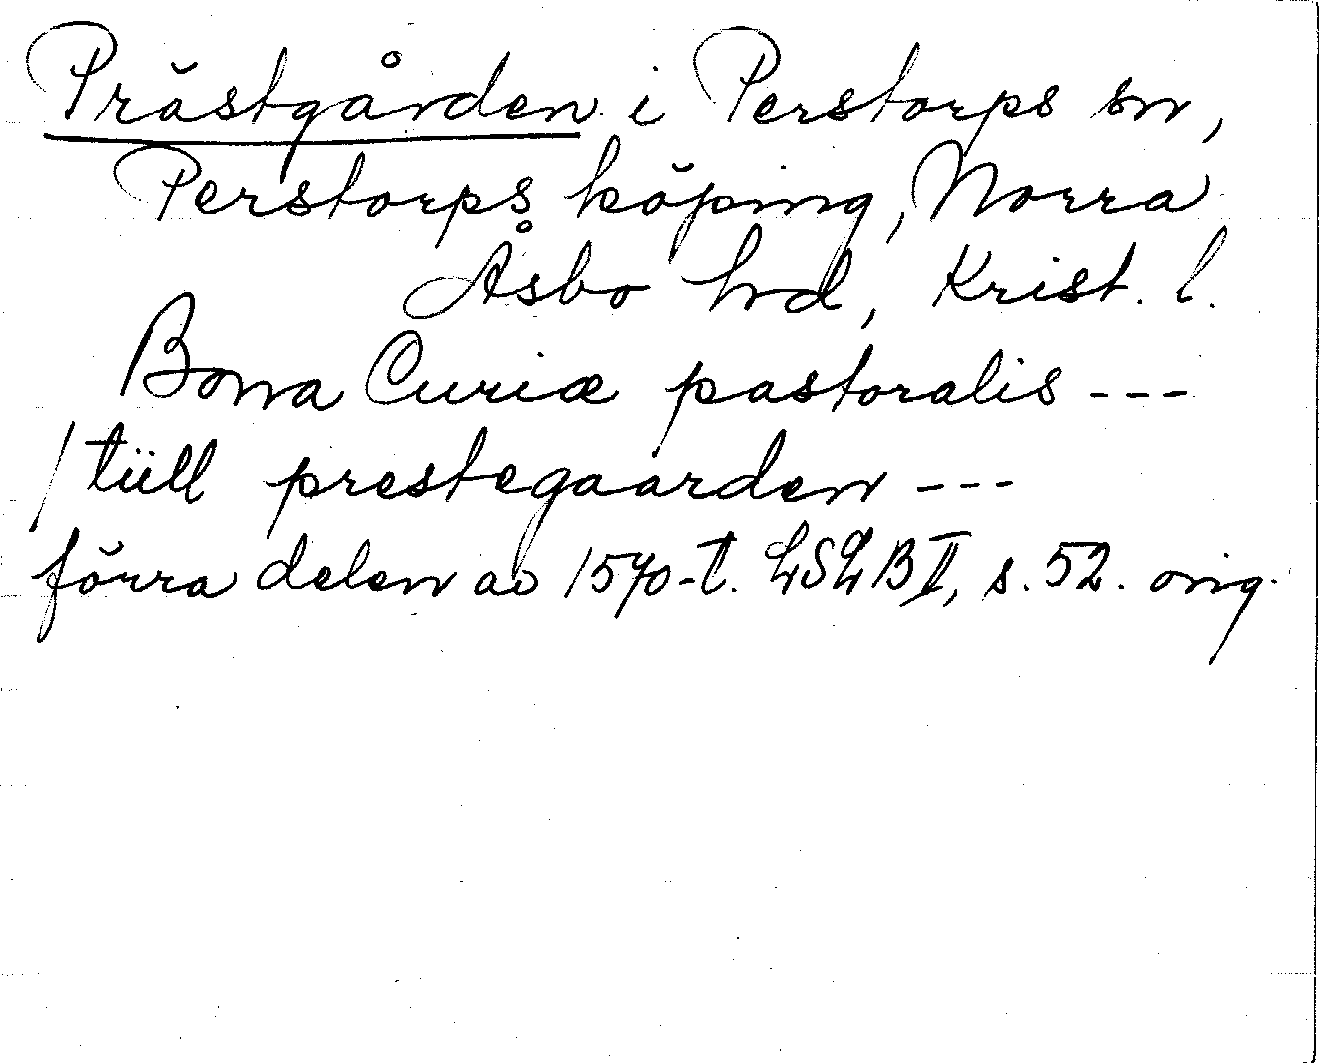 Prästgården i Perstorps sn,
Perstorps köping, Norra
Åsbo hd, Krist. l.
Bona Curiæ pastoralis ---
/ tüll prestegaarden ---
förra delen av 1570-t. LSLB II, s. 52. orig.